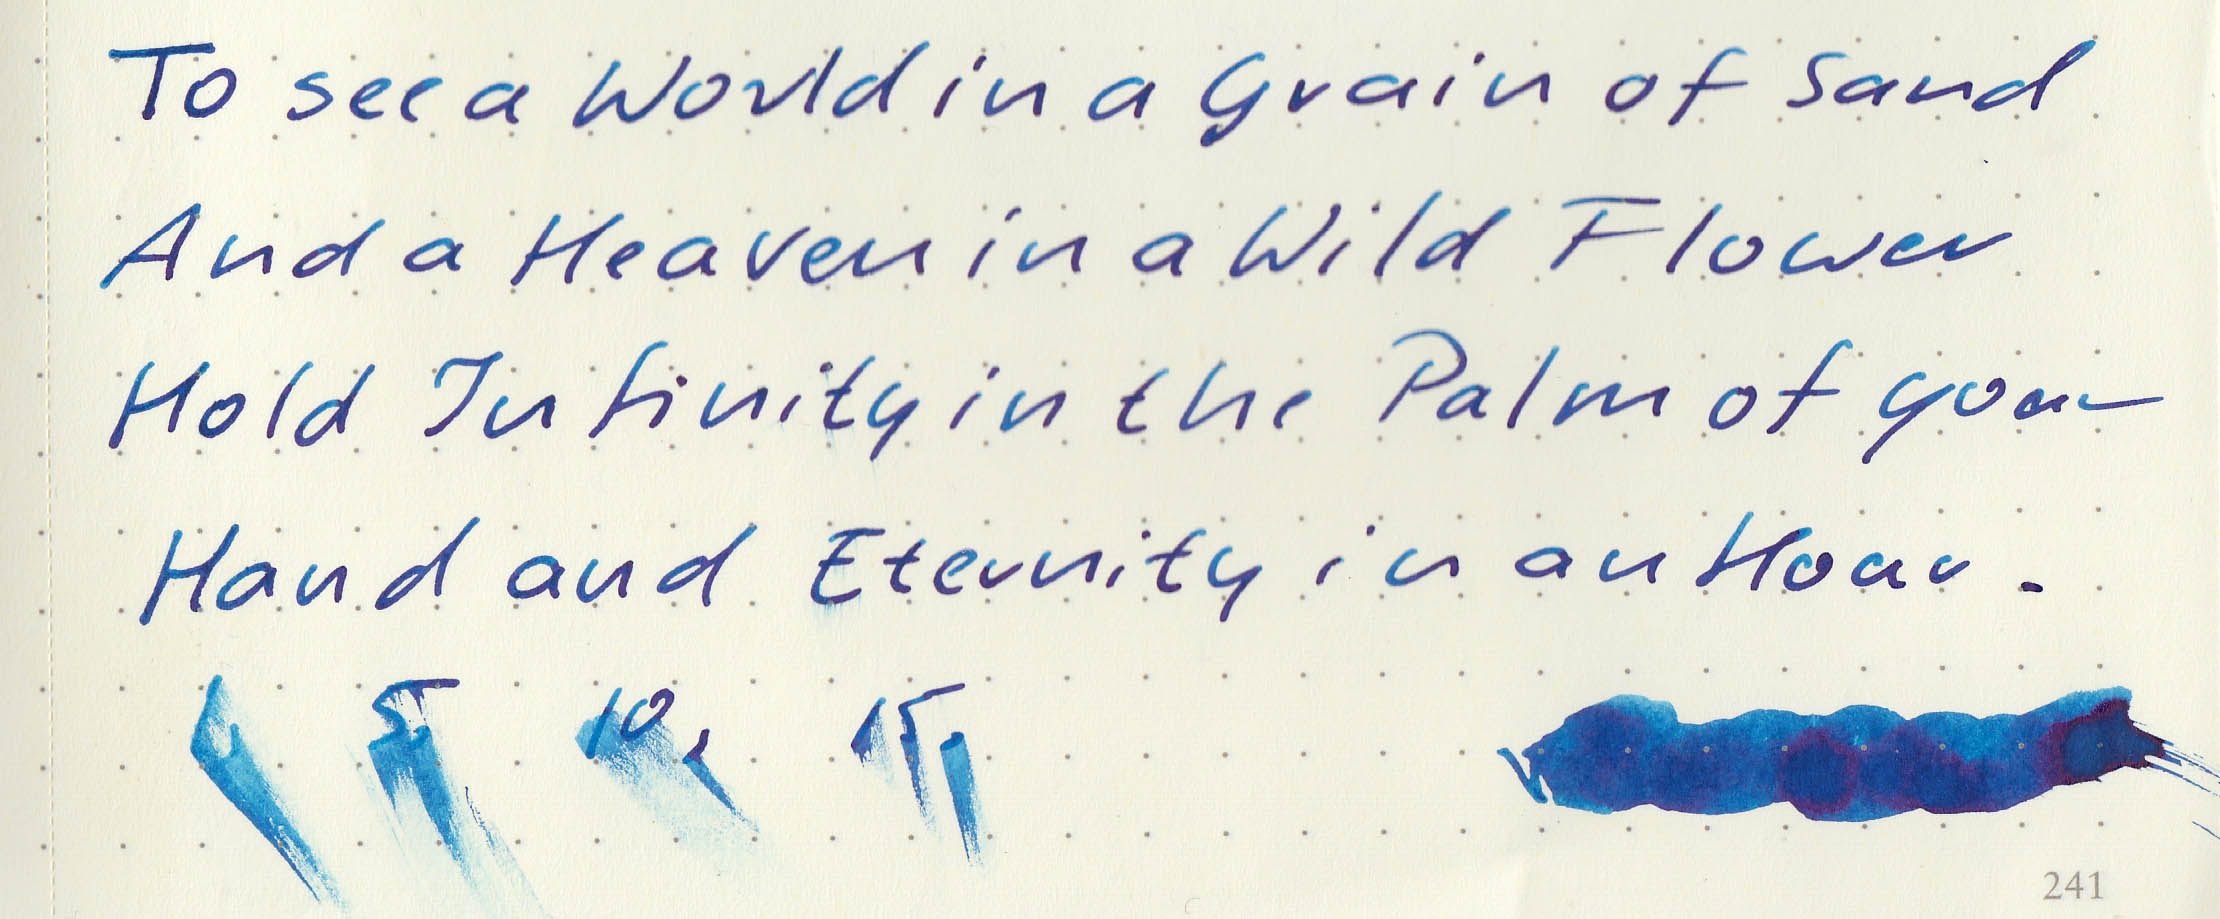 To see a World in a Grain of Sand
And a Heaven in a Wild Flower
Hold Infinity in the Palm of your
Hand and Eternity in an Hour.
5 10 15
241